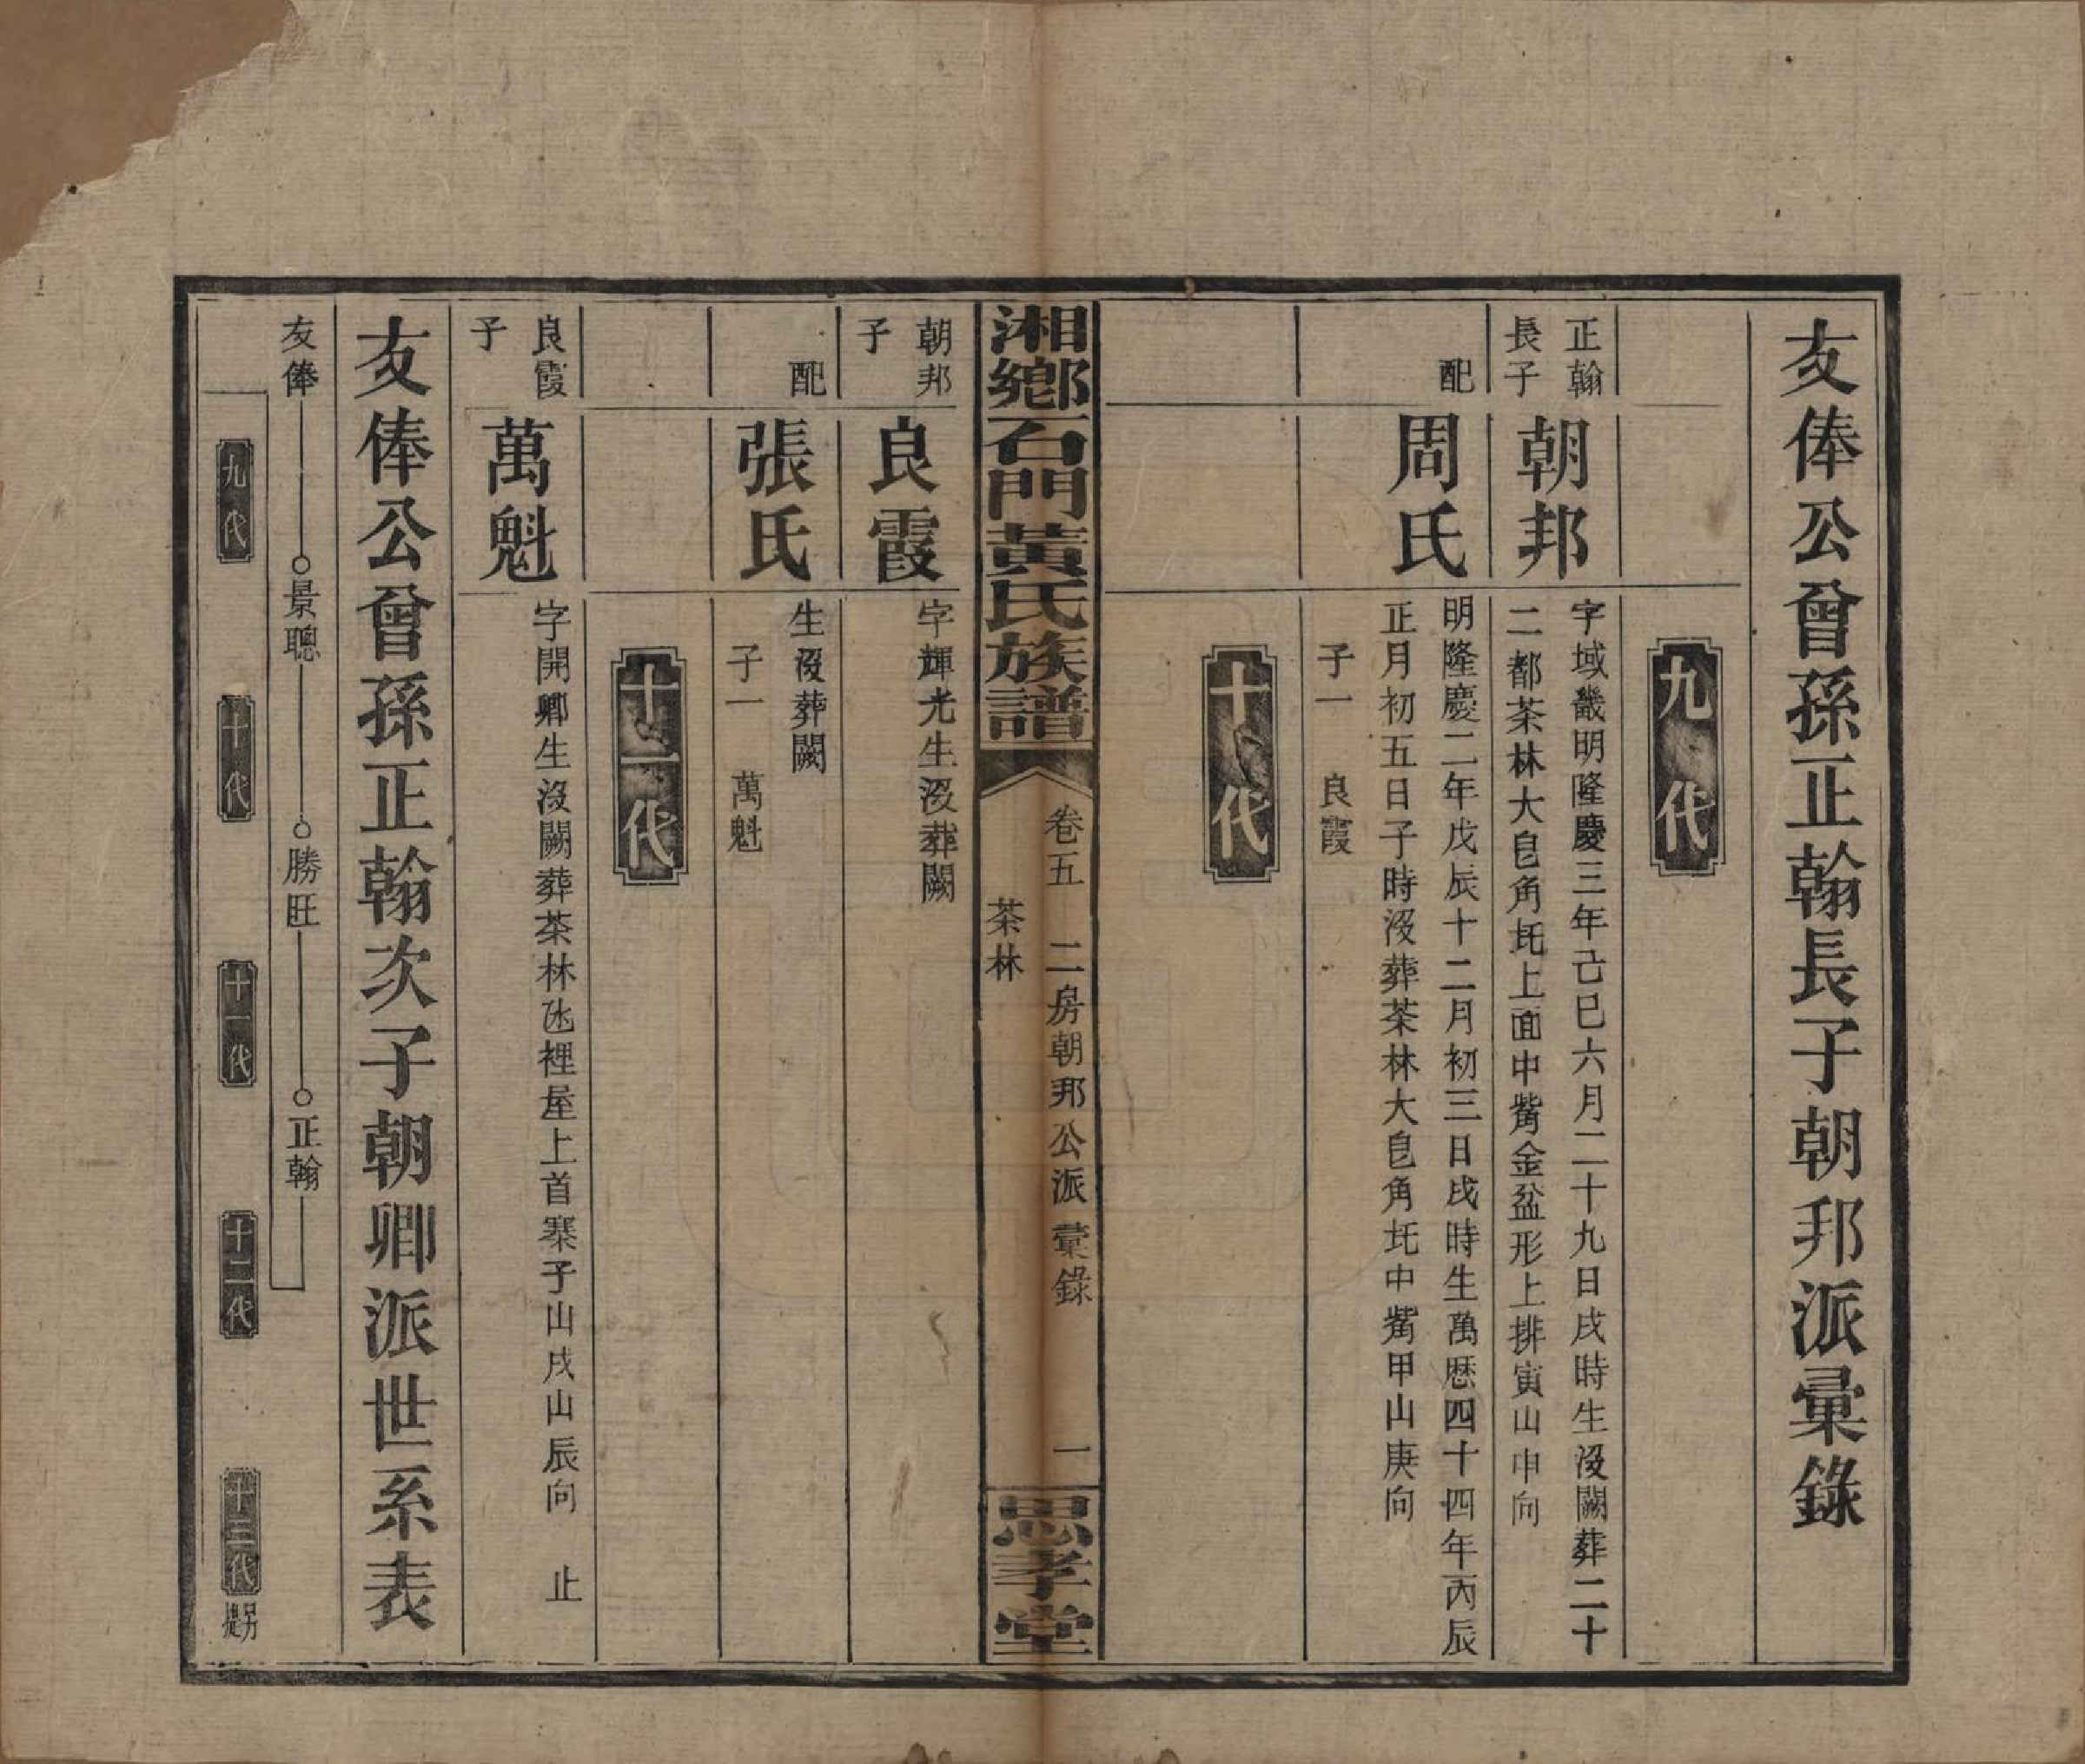 友俸公曾孫正翰長子朝邦派彙錄
九代
正翰
長子
朝邦
字域畿明隆慶三年己巳六月二十九日戌時生沒闕葬二十
二都茶林大皀角坉上面中觜金盆形上排寅山申向
配
周氏
明隆慶二年戊辰十二月初三日戌時生萬歷四十四年丙辰
正月初五日子時沒葬茶林大皀角坉中觜甲山庚向
子一　良霞
十代
湘鄉石門黃氏族譜
卷五　二房朝邦公派彙錄
茶林
一
思孝堂
朝邦
子
良霞
字輝光生沒葬闕
配
張氏
生沒葬闕
子一　萬魁
十一代
良霞
子
萬魁
字開卿生沒闕葬茶林氹裡屋上首寨子山戌山辰向　止
友俸公曾孫正翰次子朝卿派世系表
友俸　景聰　勝旺　正翰
九代　十代　十一代　十二代　十三代　另提